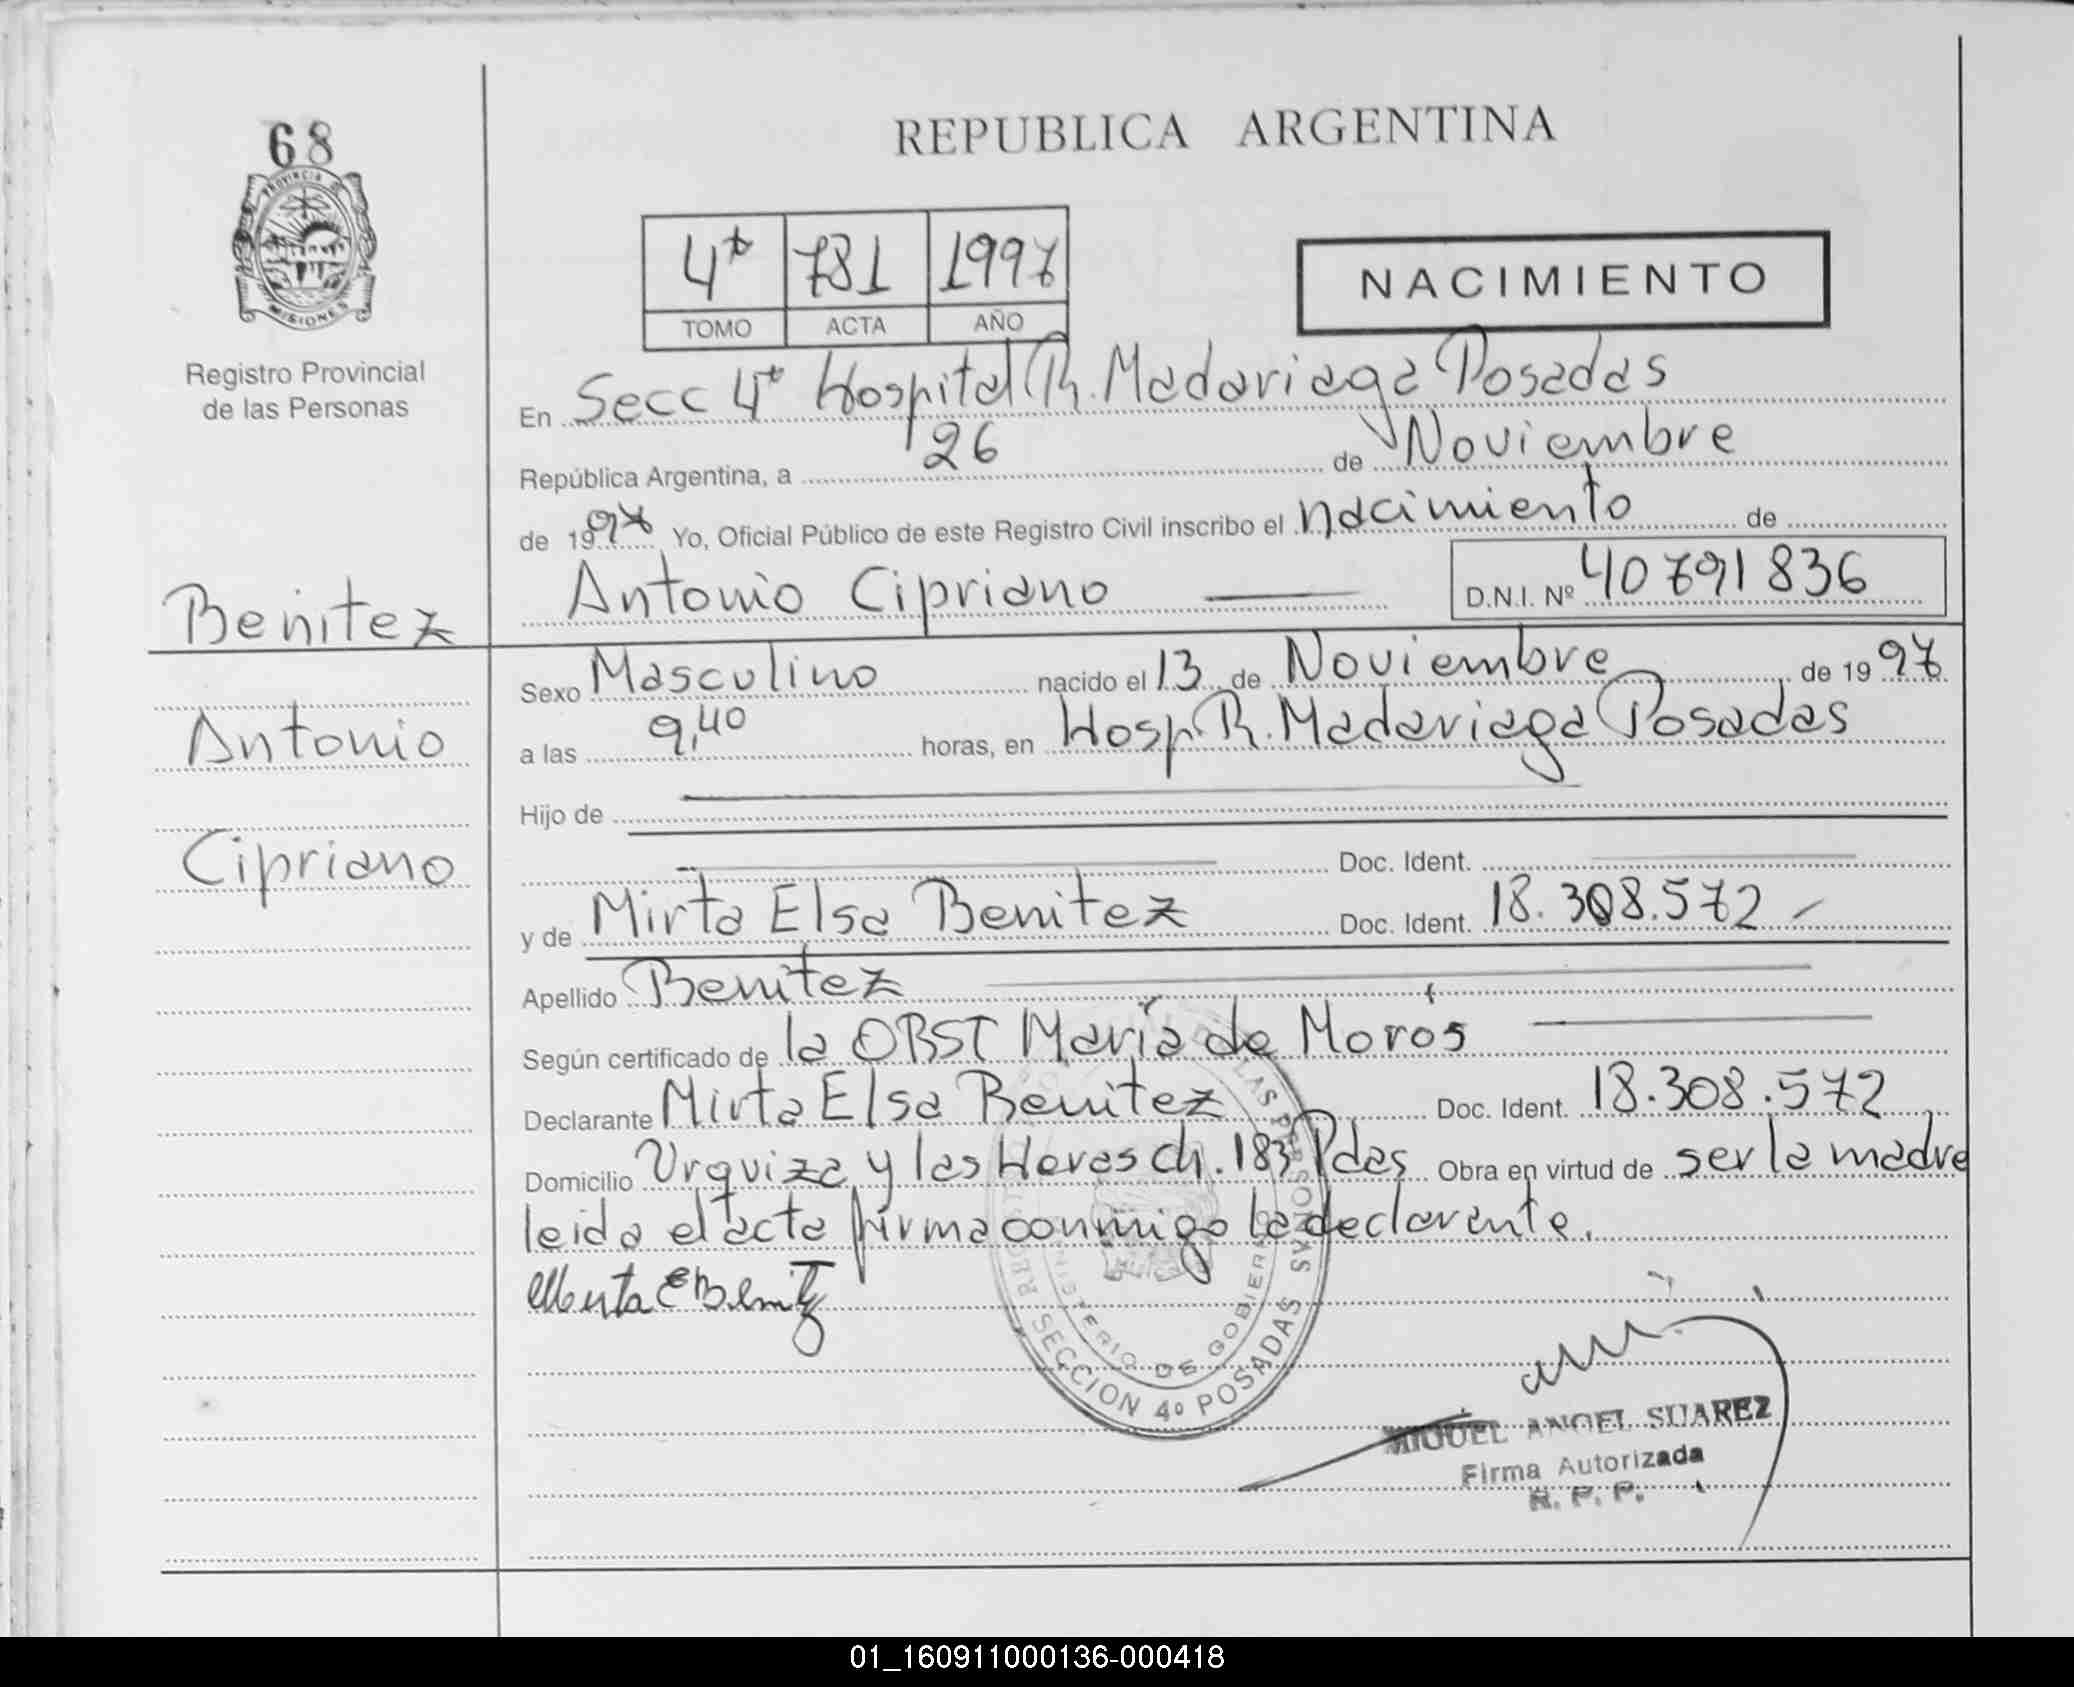 68
PROVINCIA DE
MISIONES
Registro Provincial
de las Personas
Benitez
Antonio
Cipriano
REPUBLICA ARGENTINA
4º 781 1997
TOMO ACTA AÑO
NACIMIENTO
En Secc 4º Hospital R. Madariaga Posadas
República Argentina, a 26 de Noviembre
de 1997 Yo, Oficial Público de este Registro Civil inscribo el nacimiento de
Antonio Cipriano D.N.I. Nº 40791836
Sexo Masculino nacido el 13 de Noviembre de 1997
a las 9,40 horas, en Hosp R. Madariaga Posadas
Hijo de
Doc. Ident.
y de Mirta Elsa Benitez Doc. Ident. 18.308.572
Apellido Benitez
Según certificado de la OBST María de Moros
Declarante Mirta Elsa Benitez Doc. Ident. 18.308.572
Domicilio Urquiza y las Heras ch. 183 Pdas Obra en virtud de ser la madre
leida el acta firma conmigo la declarante.
Mirta E Benitez
DE LAS PERSONAS
MINISTERIO DE GOBIERNO
SECCION 4º POSADAS
MIGUEL ANGEL SUAREZ
Firma Autorizada
R. P. P.
01_160911000136-000418